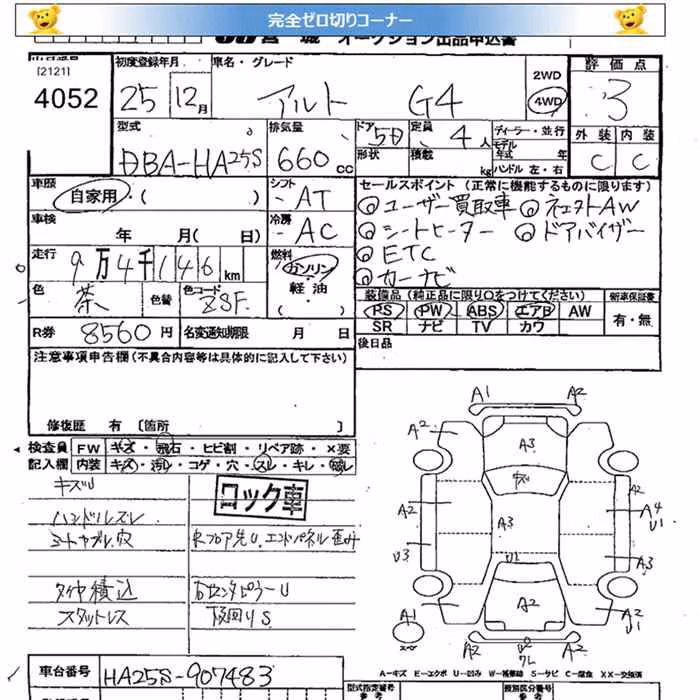 完全ゼロ切りコーナー
宮城 オークション出品申込書
出品番号 初度登録年月 車名・グレード 2WD 評価点
[2121]
4052 25 12月 アルト G4 4WD 3
型式 排気量 ドア 5D 定員 4人 ディーラー・並行 外装 内装
DBA-HA25S 660cc 形状 積載 kg モデル年式 年 C C
ハンドル 左・右
車歴 自家用・( ) シフト - AT セールスポイント (正常に機能するものに限ります)
◎ユーザー買取車 ◎ネクストAW
車検 年 月(日) 冷房 - AC ◎シートヒーター ◎ドアバイザー
走行 9万4千146km 燃料 ガソリン・軽油・( ) ◎ETC
◎カーナビ
色 茶 色替 色コード ZSF 装備品 (純正品に限り○をつけてください) 新車保証書
PS PW ABS エアB AW 有・無
R券 8560円 名変通知期限 月 日 SR ナビ TV カワ
注意事項申告欄 (不具合内容等は具体的に記入して下さい) 後日品
修復歴 有 〔箇所 〕
検査員 FW キズ・飛石・ヒビ割・リペア跡・×要
記入欄 内装 キズ・汚レ・コゲ・穴・スレ・キレ・破レ
キズU ロック車
ハンドルスレ
シートカブレ穴
タイヤ積込 右センタピラーU
スタットレス 下回りS
A1 A2
A2 A3
A2 A3 A2 A4 U1
U3 U1 A3
A1 A2 A2 U1
A2 A2
A-キズ E-エクボ U-凹み W-補修跡 S-サビ C-腐食 XX-交換済
車台番号 HA25S-907483 型式指定番号 類別区分番号
参考 参考